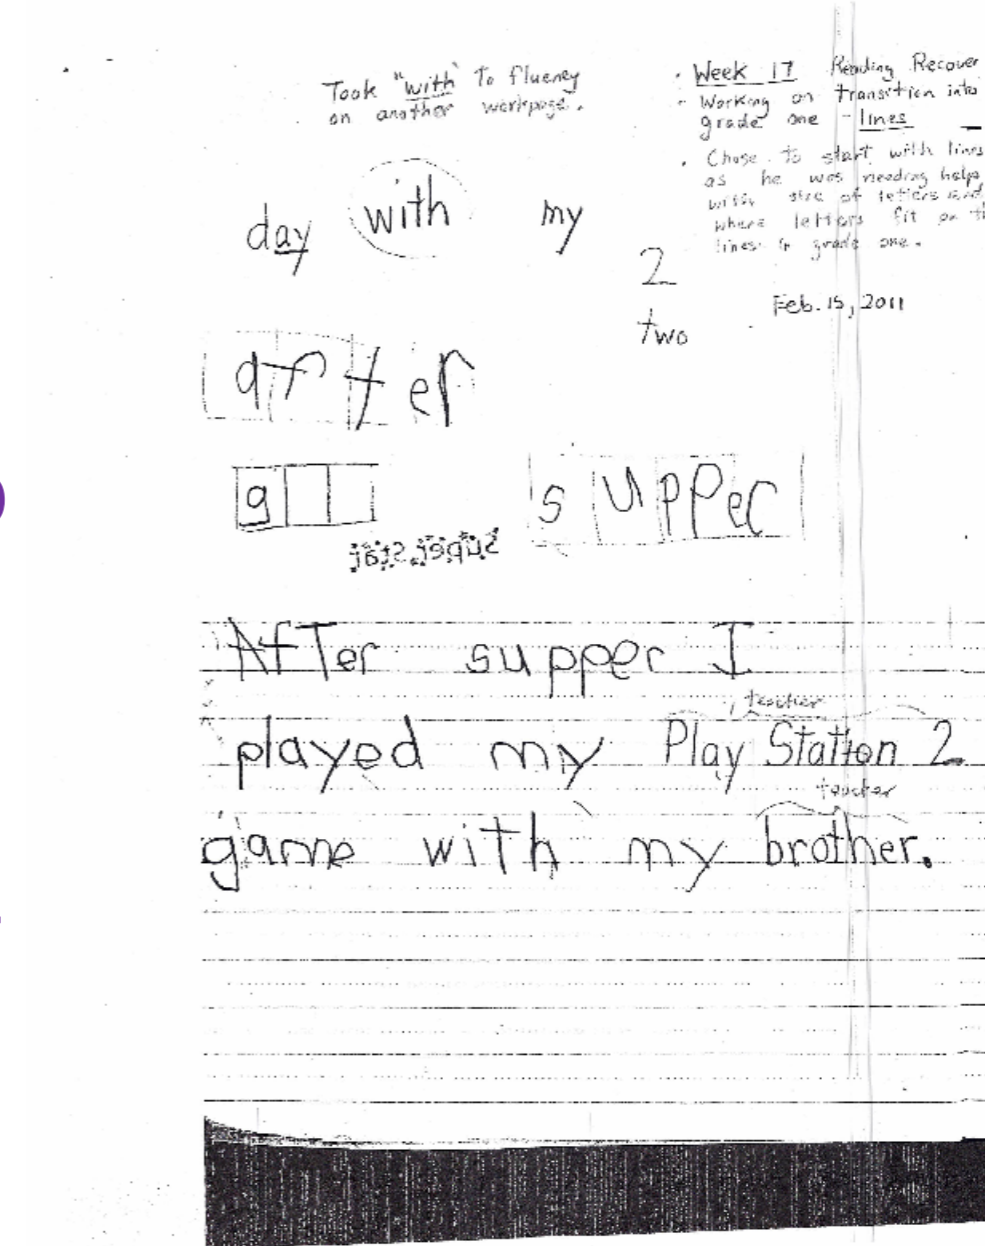 Took "with" To fluency
on another workpage.
· Week 17 Reading Recover
- Working on transition into
grade one - lines
· Chose to start with lines
as he was needing help
with size of letters and
where letters fit on th
lines in grade one.
day with my
2
two
Feb. 15, 2011
after
g
supper
After supper I
teacher
played my Play Station 2
teacher
game with my brother.